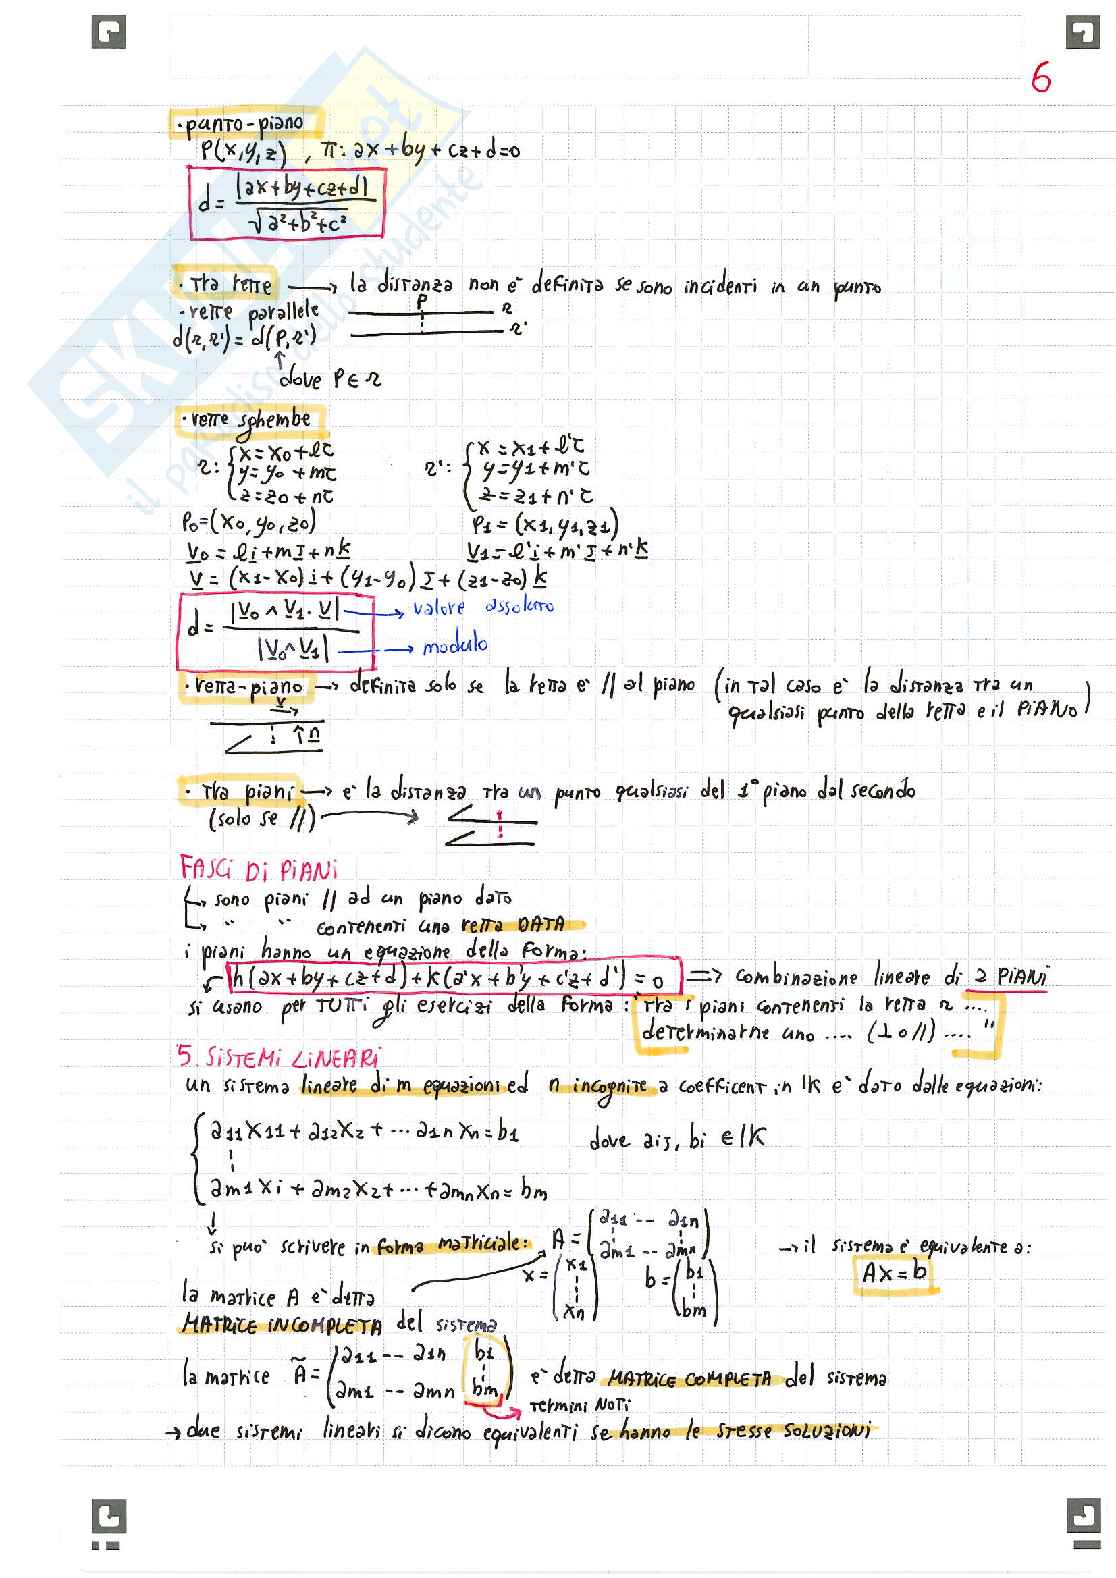 6
· punto-piano
P(x,y,z) , π: ax+by+cz+d=0
d = |ax+by+cz+d| / √a²+b²+c²
· tra rette → la distanza non e' definita se sono incidenti in un punto
- rette parallele P r
d(r,r') = d(P,r') r'
dove P∈r
· rette sghembe
r: { x=x0+lt r': { x=x1+l't
y=y0+mt y=y1+m't
z=z0+nt z=z1+n't
P0=(x0,y0,z0) P1=(x1,y1,z1)
V0 = li+mJ+nk V1=l'i+m'J+n'k
V = (x1-x0)i+(y1-y0)J+(z1-z0)k
d = |V0 ∧ V1 · V| → valore assoluto
|V0∧V1| → modulo
· retta-piano → definita solo se la retta e' // al piano (in tal caso e' la distanza tra un
qualsiasi punto della retta e il PIANO)
v
n
· tra piani → e' la distanza tra un punto qualsiasi del 1° piano dal secondo
(solo se //) →
FASCI DI PIANI
↳ sono piani // ad un piano dato
↳ " " contenenti una retta DATA
i piani hanno un equazione della forma:
h(ax+by+cz+d)+k(a'x+b'y+c'z+d')=0 ⇒ combinazione lineare di 2 PIANI
si usano per TUTTI gli esercizi della forma: "tra i piani contenenti la retta r ....
determinarne uno .... (⊥ o //) .... "
5. SISTEMI LINEARI
un sistema lineare di m equazioni ed n incognite a coefficent, in IK e' dato dalle equazioni:
{ a11x11+a12x2+ ··· a1nxn=b1 dove aij, bi ∈ IK
am1xi+am2x2+ ··· +amnxn=bm
↓
si puo' scrivere in forma matriciale: A = (a11 -- a1n → il sistema e' equivalente a:
am1 -- amn)
x = (x1 xn) b = (b1 bm) Ax=b
la matrice A e' detta
MATRICE INCOMPLETA del sistema
la matrice Ã = (a11 -- a1n b1 e' detta MATRICE COMPLETA del sistema
am1 -- amn bm)
TERMINI NOTI
→ due sistemi lineari si dicono equivalenti se hanno le stesse soluzioni
SKUOLA.net
il paradiso dello studente